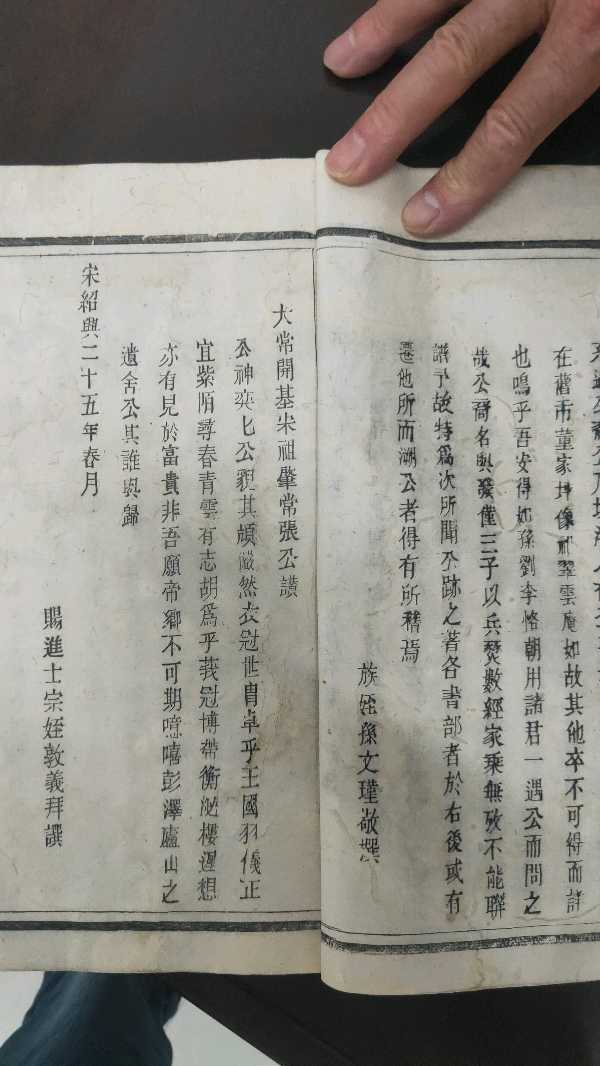 在舊市董家坪像祠翠雲庵如故其他卒不可得而詳
也嗚乎吾安得如孫劉李恪朝用諸君一遇公而問之
哉公裔名與發僅三子以兵燹數經家乘無攷不能聯
譜予故特為次所聞公跡之著各書部者於右後或有
遷他所而溯公者得有所稽焉
族姪孫文瑾敬撰
大常開基宋祖肇常張公讃
公神奕匕公貌其頎儼然衣冠世胄卓乎王國羽儀正
宜紫陌尋春青雲有志胡為乎莪冠博帶衡泌棲遲想
亦有見於富貴非吾願帝鄉不可期噫嘻彭澤廬山之
遺舍公其誰與歸
宋紹興二十五年春月
賜進士宗姪敦義拜譔